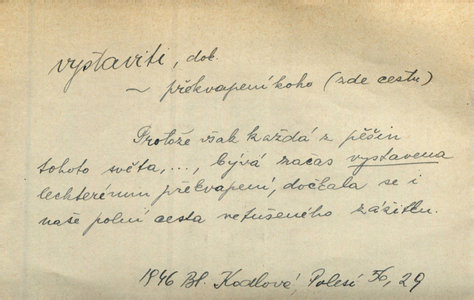 vystaviti, dok.
~ překvapení koho (zde cestu)
Protože však každá z pěšin
tohoto světa, ..., bývá začas vystavena
leckterému překvapení, dočkala se i
naše polní cesta netušeného zážitku.
1946 Bl. Kodlová, Polesí 56, 29